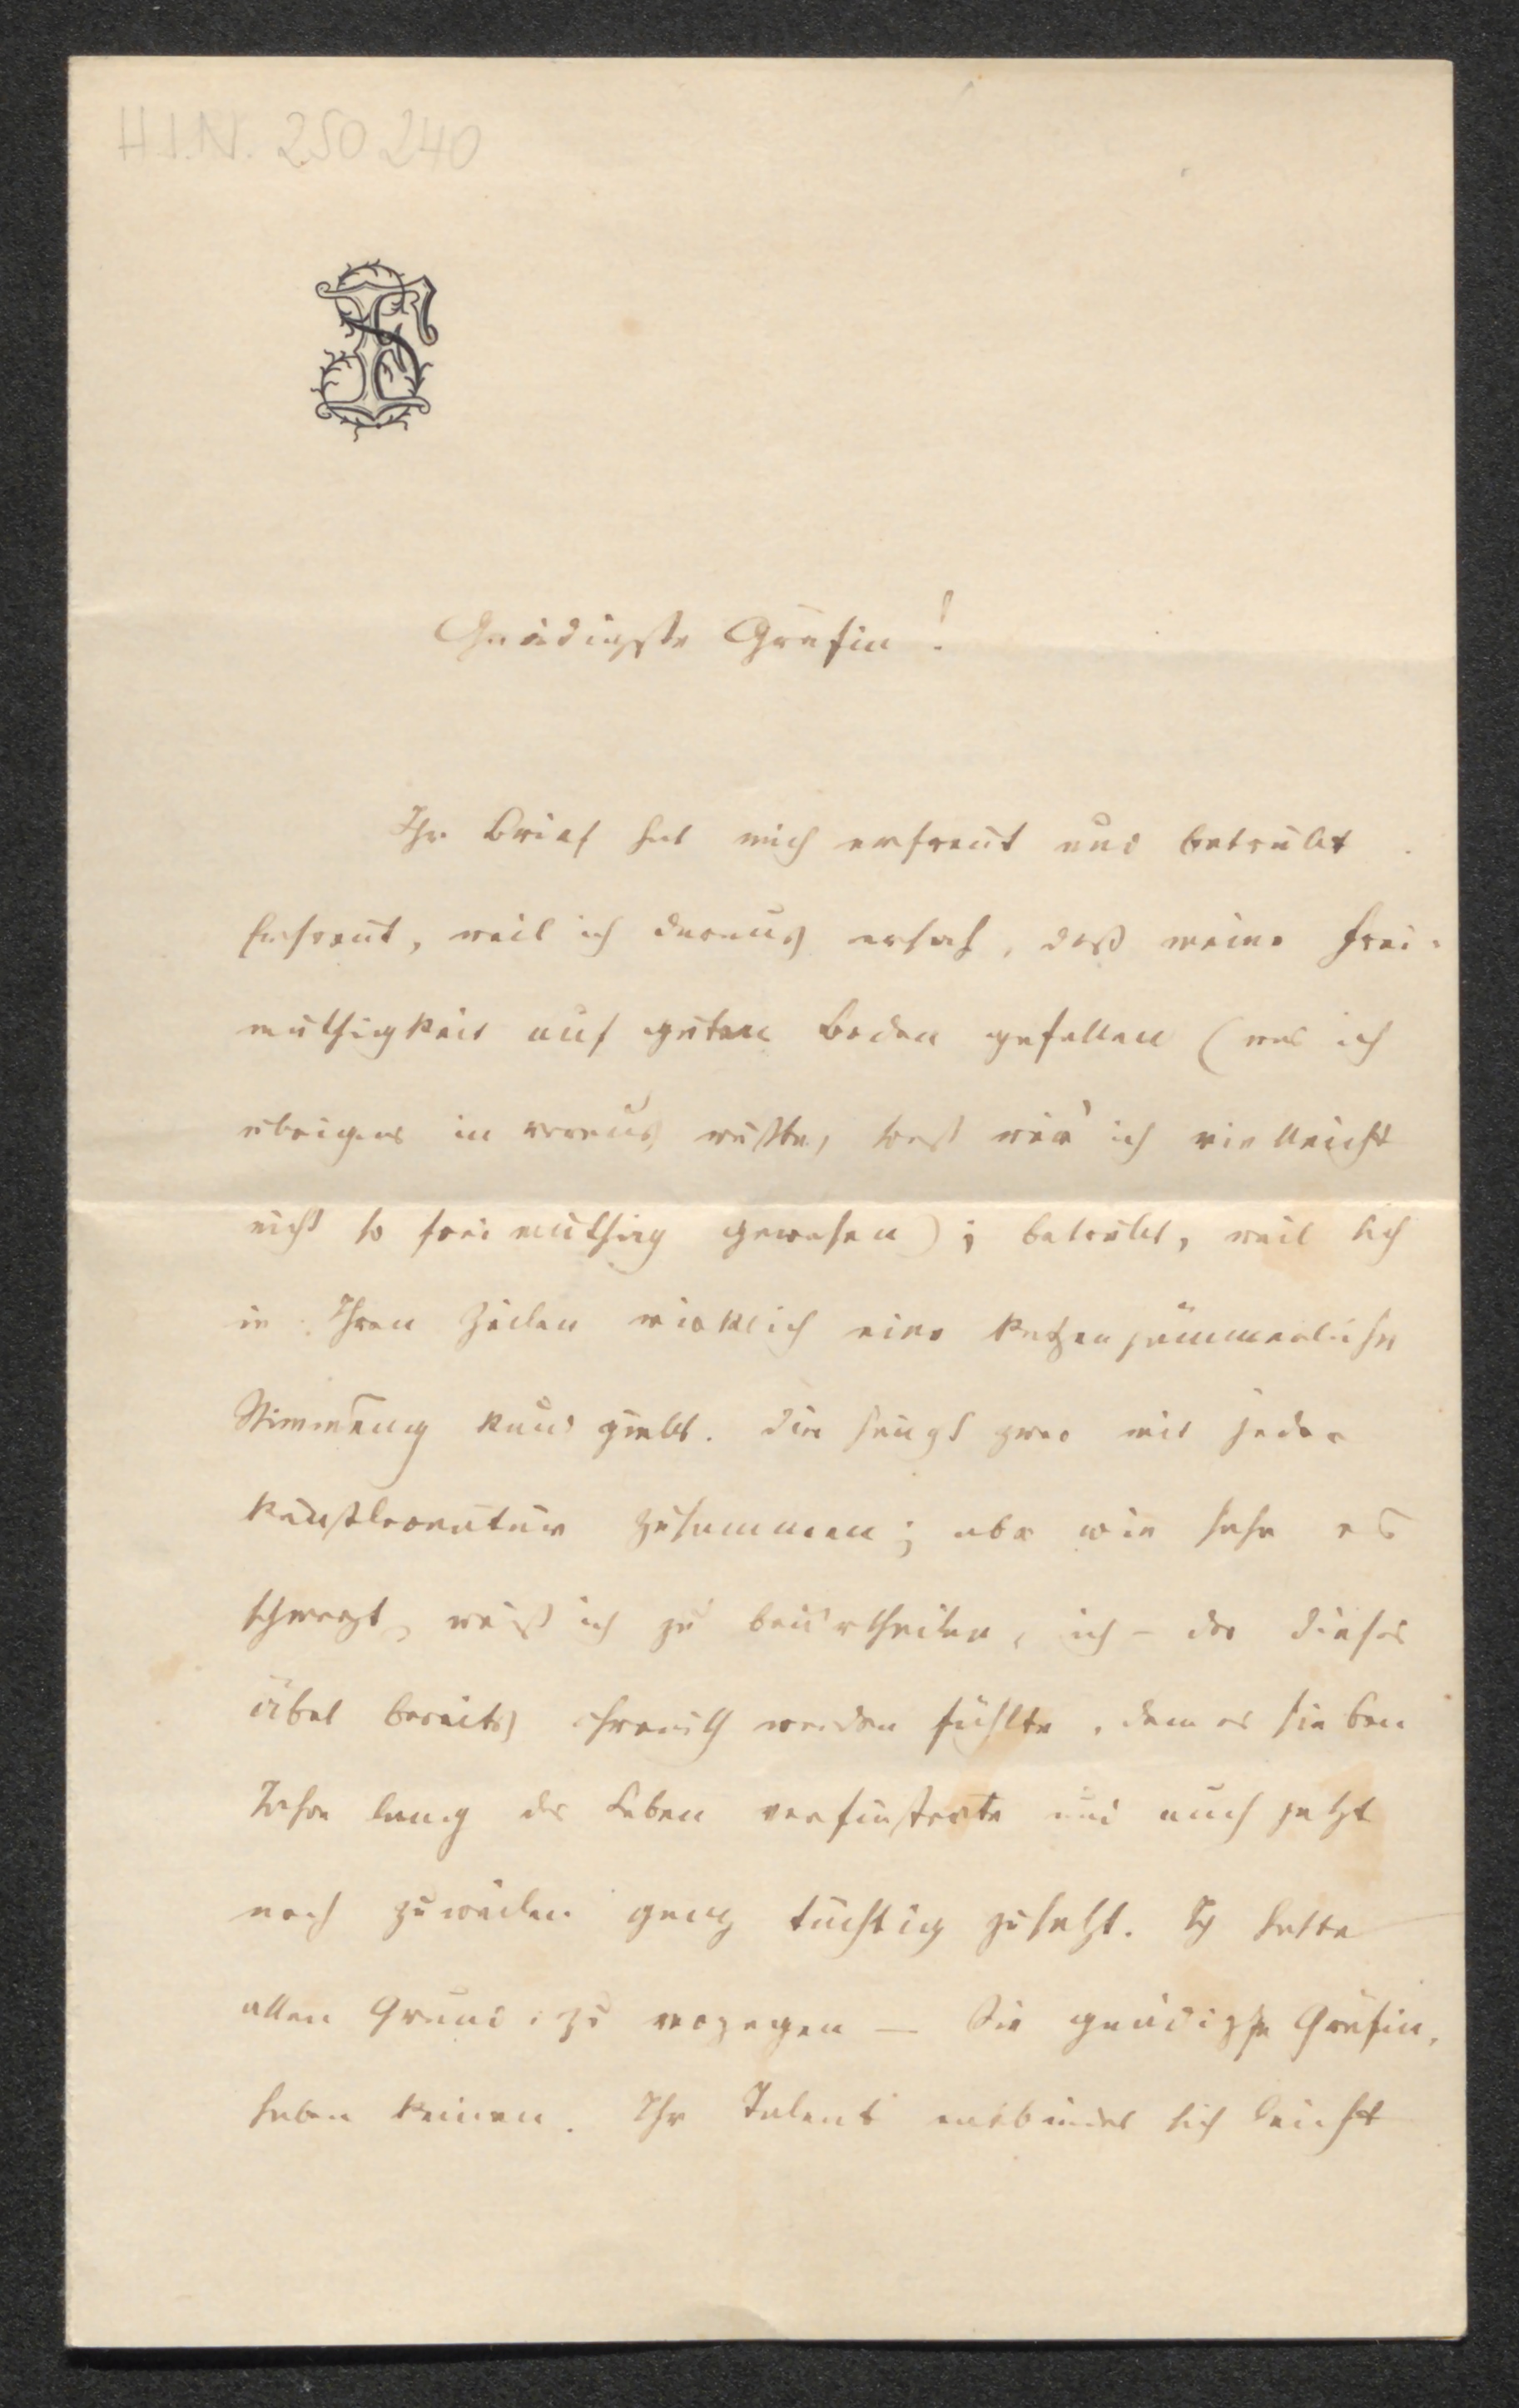 H.I.N. 250240
Gnädigste Gräfin!
Ihr Brief hat mich erfreut und betrübt.
Erfreut, weil ich daraus ersah, daß meine Frei-
müthigkeit auf guten Boden gefallen (was ich
übrigens im voraus wußte, sonst wär' ich vielleicht
nicht so freimüthig gewesen); betrübt, weil sich
in Ihren Zeilen wirklich eine katzenjämmerliche
Stimmung kund giebt. Die hängt zwar mit jeder
Künstlernatur zusammen; aber wie sehr es
schmerzt, weiß ich zu beurtheilen, ich – der dieses
Übel bereits chronisch werden fühlte, dem es sieben
Jahre lang das Leben verfinsterte und auch jetzt
noch zuweilen ganz tüchtig zusetzt. Ich hatte
allen Grund zu verzagen — Sie gnädigste Gräfin,
haben keinen. Ihr Talent entbindet sich leicht